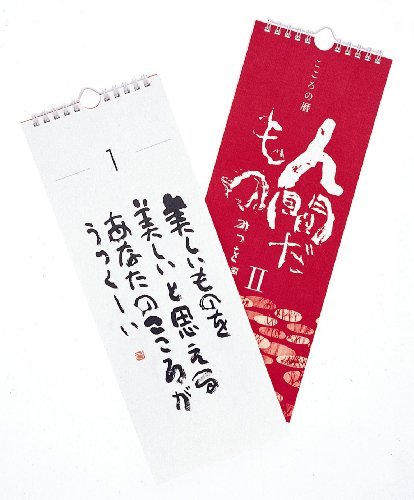 1
美しいものを
美しいと思える
あなたのこころが
うつくしい
こころの暦
人間だ
もの
みつを
II